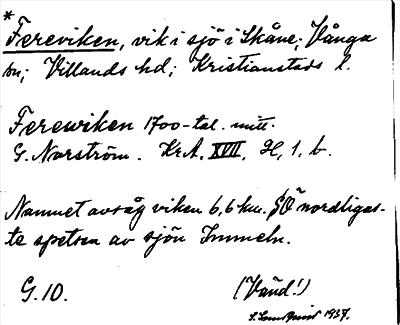 *
Fereviken, vik i sjö i Skåne; Vånga
sn; Villands hd; Kristianstads l.
Ferewiken 1700-tal. mitt.
G. Norström. Kr.A. XVII, H, 1, b.
Namnet avsåg viken 6,6 km. SÖ nordligas-
te spetsen av sjön Immeln.
G. 10. (Vänd!)
1937.